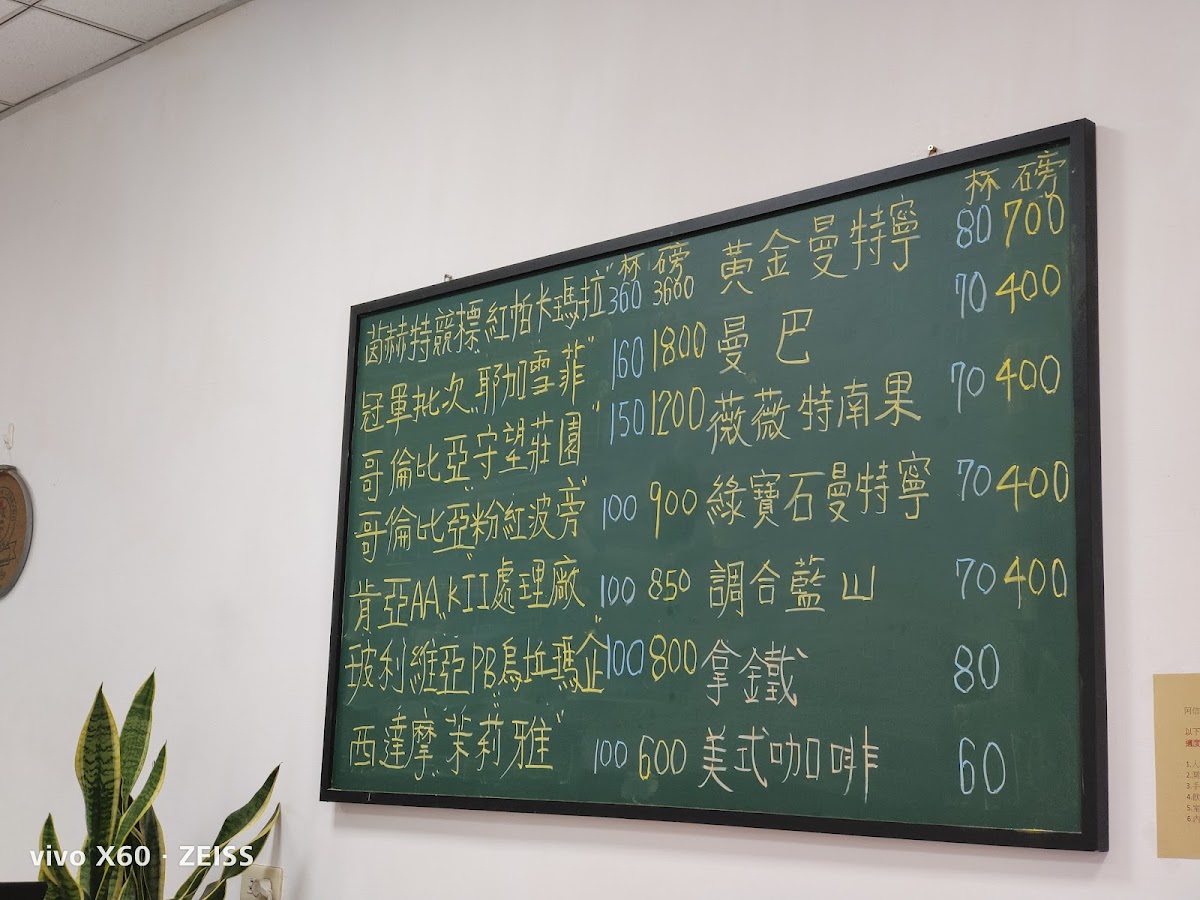 杯 磅
茵赫特競標"紅帕卡瑪拉" 360 3600
冠軍批次"耶加雪菲" 160 1800
哥倫比亞"守望莊園" 150 1200
哥倫比亞"粉紅波旁" 100 900
肯亞AA"KII處理廠" 100 850
玻利維亞PB"烏拉瑪企" 100 800
西達摩"茉莉雅" 100 600
杯 磅
黃金曼特寧 80 700
曼巴 70 400
薇薇特南果 70 400
綠寶石曼特寧 70 400
調合藍山 70 400
拿鐵 80
美式咖啡 60
vivo X60 · ZEISS